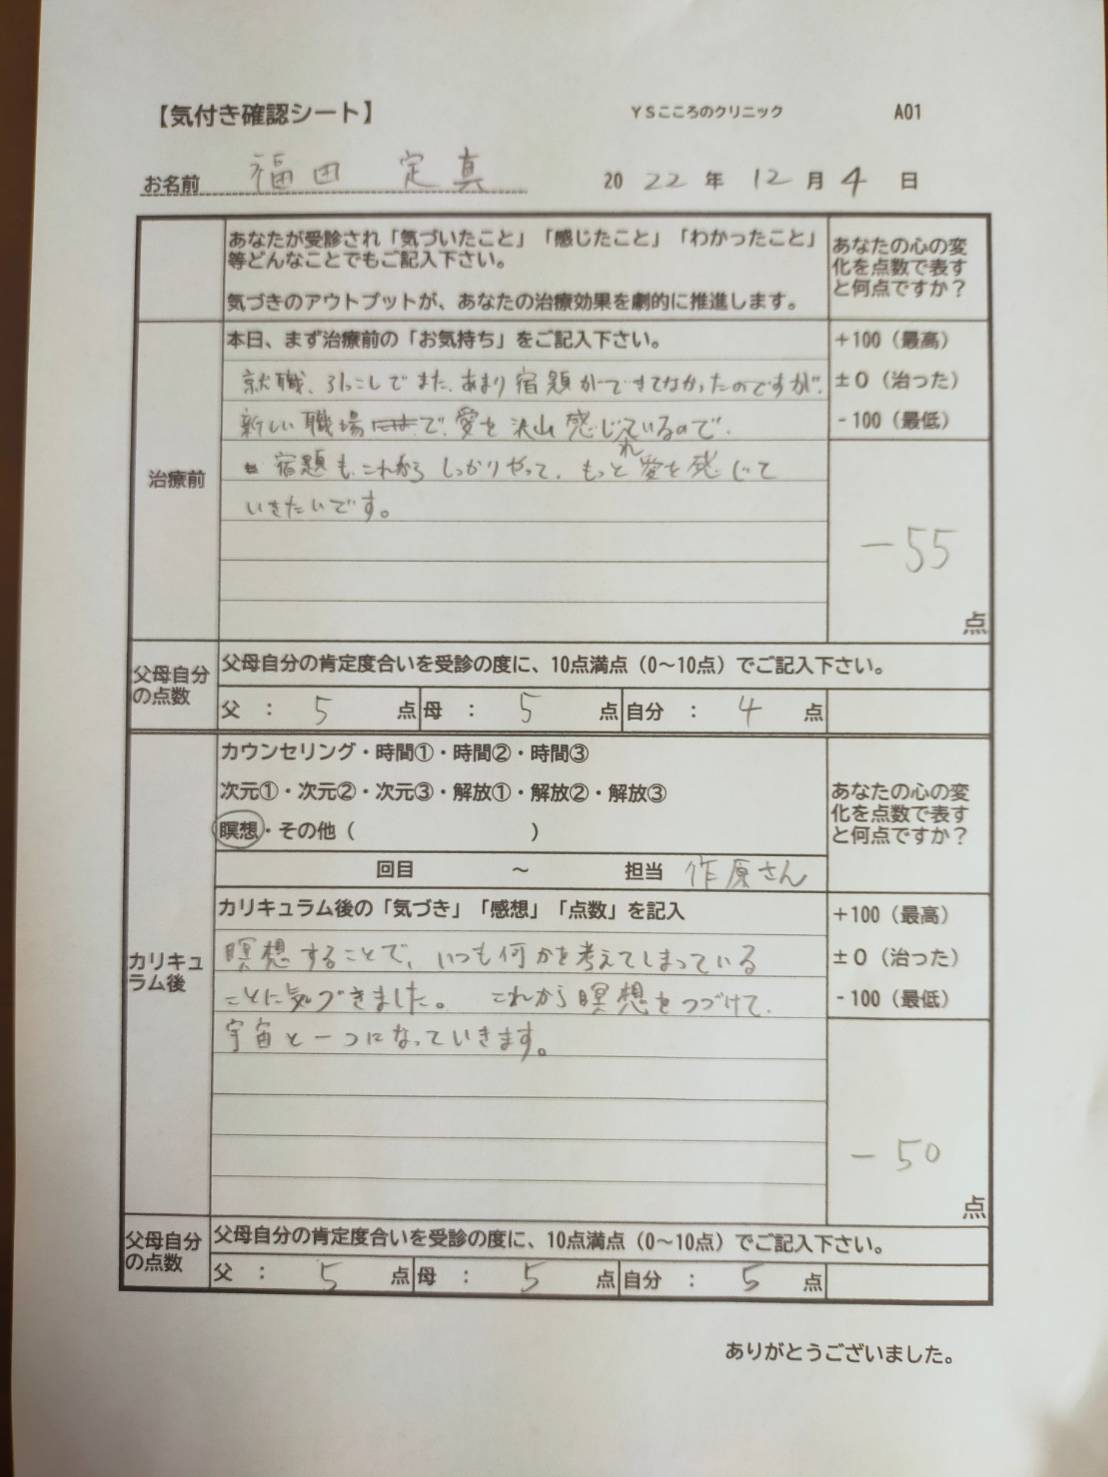 【気付き確認シート】 YSこころのクリニック A01
お名前 福田 定真 2022年 12月 4日
あなたが受診され「気づいたこと」「感じたこと」「わかったこと」
等どんなことでもご記入下さい。
気づきのアウトプットが、あなたの治療効果を劇的に推進します。
あなたの心の変
化を点数で表す
と何点ですか?
治療前
本日、まず治療前の「お気持ち」をご記入下さい。
就職、引っこしでまた、あまり宿題ができてなかったのですが、
新しい職場で、愛を沢山感じれているので、
宿題も、これからしっかりやって、もっと愛を感じて
いきたいです。
+100(最高)
±0(治った)
-100(最低)
-55
点
父母自分
の点数
父母自分の肯定度合いを受診の度に、10点満点(0~10点)でご記入下さい。
父 : 5 点 母 : 5 点 自分 : 4 点
カウンセリング・時間①・時間②・時間③
次元①・次元②・次元③・解放①・解放②・解放③
瞑想・その他( )
回目 ~ 担当 作原さん
あなたの心の変
化を点数で表す
と何点ですか?
カリキュ
ラム後
カリキュラム後の「気づき」「感想」「点数」を記入
瞑想することで、いつも何かを考えてしまっている
ことに気づきました。 これから瞑想をつづけて、
宇宙と一つになっていきます。
+100(最高)
±0(治った)
-100(最低)
-50
点
父母自分
の点数
父母自分の肯定度合いを受診の度に、10点満点(0~10点)でご記入下さい。
父 : 5 点 母 : 5 点 自分 : 5 点
ありがとうございました。